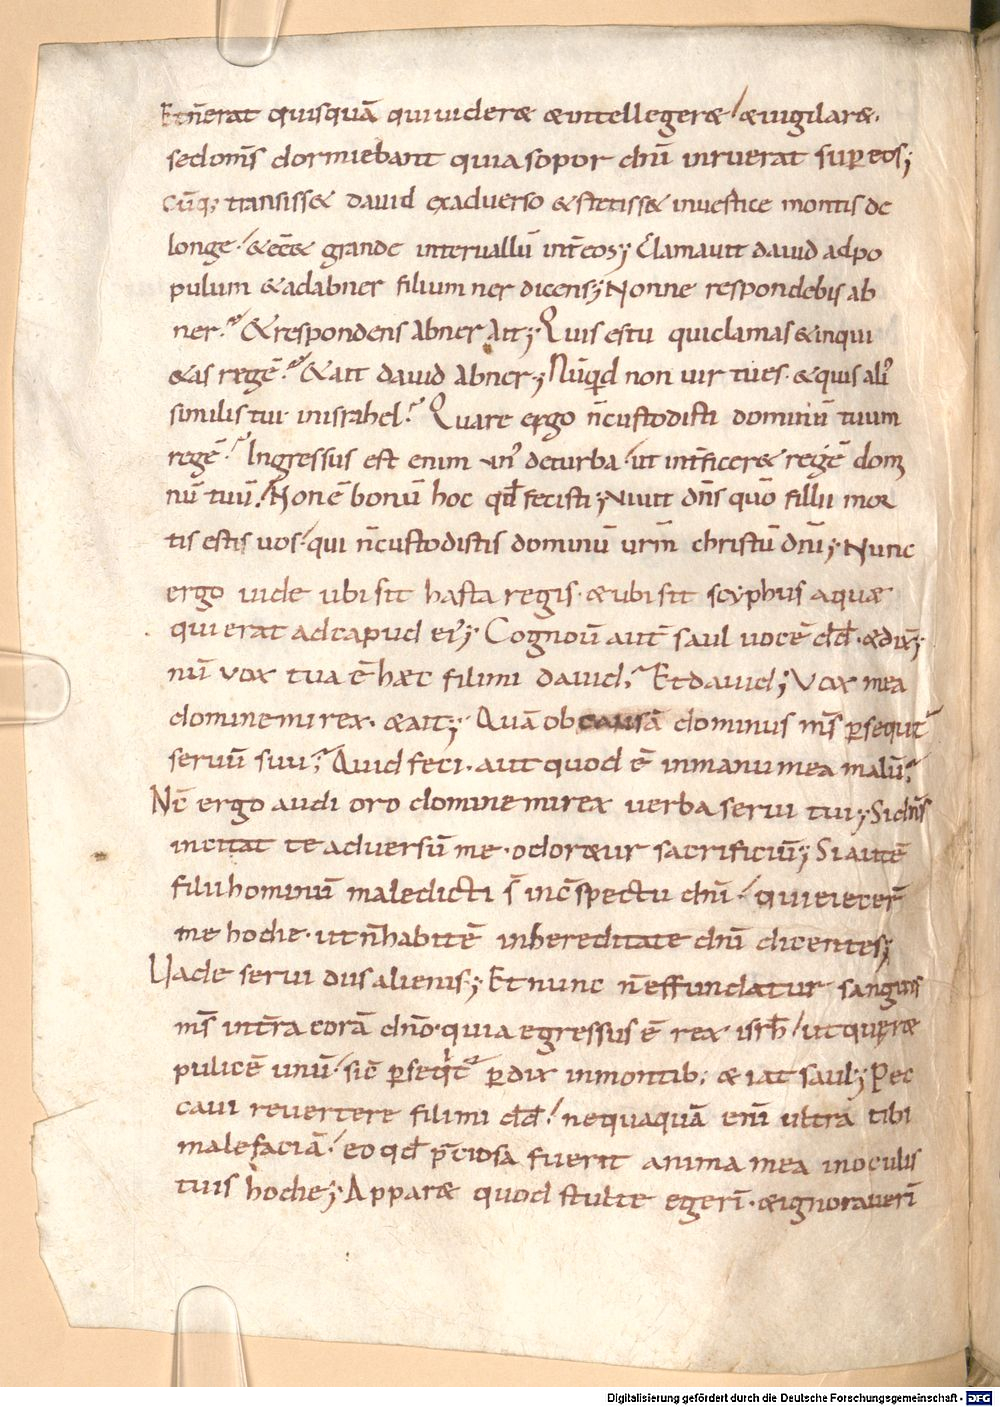 Et n̄ erat quisquā qui uideræ & intellegeræ / & uigilaræ.
sed om̄s dormiebant quia sopor dn̄i inruerat sup eos;
Cūq; transiss& dauid exaduerso & stetiss& in uertice montis de
longe / & eē& grande interuallū int̄ eos; Clamauit dauid ad po
pulum & ad abner filium ner dicens; Nonne respondebis ab
ner? & respondens abner ait; Quis es tu qui clamas & inqui
&as regē? & ait dauid abner; Nūqd non uir tu es. & quis ali'
similis tui in israhel? Quare ergo n̄ custodisti dominū tuum
regē? Ingressus est enim un' de turba / ut int̄ficeræ regē dom
nū tuū / Non ē bonū hoc qd̄ fecisti; Viuit dn̄s quō filii mor
tis estis uos. qui n̄ custodistis dominū urm̄ christū dn̄i; Nunc
ergo uide ubi sit hasta regis. & ubi sit scyphus aquæ
qui erat ad capud ei'; Cognoū aut̄ saul uocē dd̄. & dix̄;
nū vox tua ē hæc fili mi dauid? Et dauid; Vox mea
domine mi rex. & ait; Quā ob causā dominus m̄s p̄sequit̄
seruū suū? Quid feci. aut quod ē in manu mea malū?
Nc̄ ergo audi oro domine mi rex uerba serui tui; Si dn̄s
incitat te aduersū me. odoræur sacrificiū; Si autē
filii hominū maledicti s̄ in c̄spectu dn̄i / qui eiecer̄
me hodie. ut n̄ habitē in hereditate dn̄i dicentes;
Uade serui diis alienis; Et nunc n̄ effundatur sanguis
m̄s in terra corā dn̄o. quia egressus ē rex isrl̄ / ut quæræ
pulicē unū / sic̄ p̄seqit̄ p̄dix in montib; & iat saul; Pec
caui reuertere fili mi dd̄ / nequaquā eni ultra tibi
male faciā / eo qd̄ p̄tiosa fuerit anima mea in oculis
tuis hodie; Apparæ quod stulte egerī. & ignorauerī
Digitalisierung gefördert durch die Deutsche Forschungsgemeinschaft - DFG